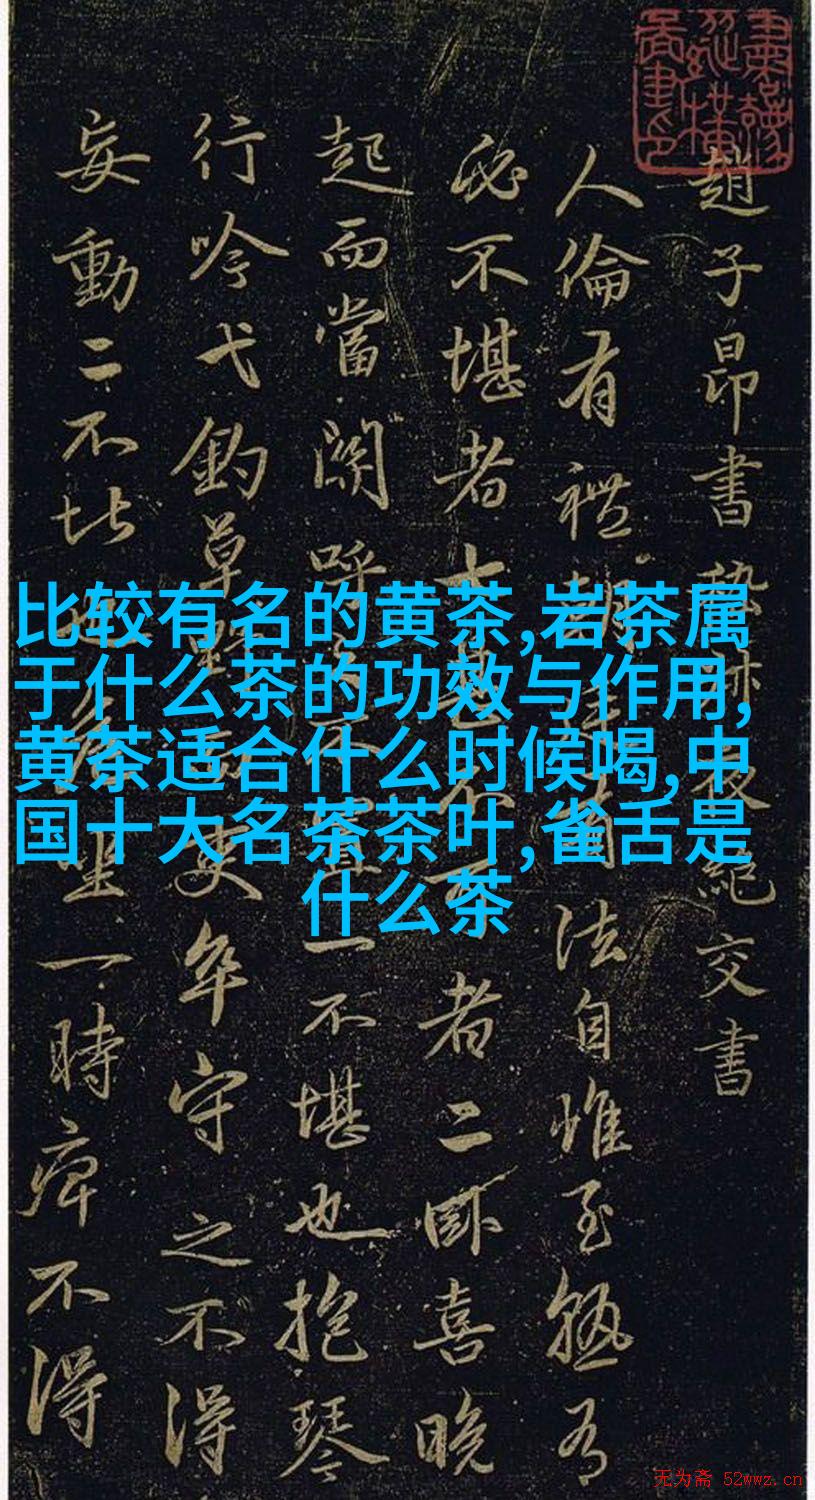 比较有名的黄茶,岩茶属
于什么茶的功效与作用,
黄茶适合什么时候喝,中
国十大名茶茶叶,雀舌是
什么茶
趙子昂書絕交書
人倫有禮朝有法自惟至熟有
必不堪者七甚不可者二卧喜晚
起而當關呼之不一不堪也抱琴
行吟弋釣草野吏卒守之不得
妄動二不堪坐一時痺不得
无为斋 52wwz.cn